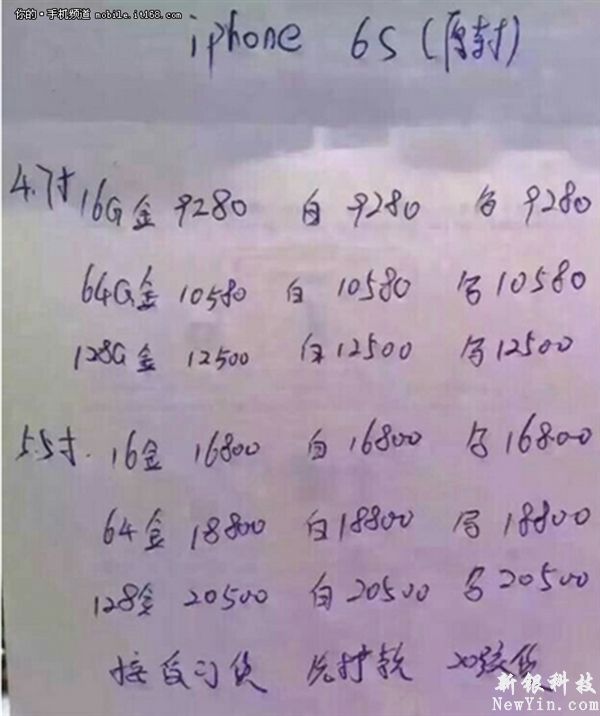 你的·手机频道 mobile.it168.com
iphone 6S (原封)
4.7寸 16G金 9280 白 9280 9280
64G金 10580 白 10580 10580
128G金 12500 白 12500 12500
5.5寸. 16金 16800 白 16800 16800
64金 18800 白 18800 18800
128金 20500 白 20500 20500
接受订货 先打款 货
新银科技
NewYin.com